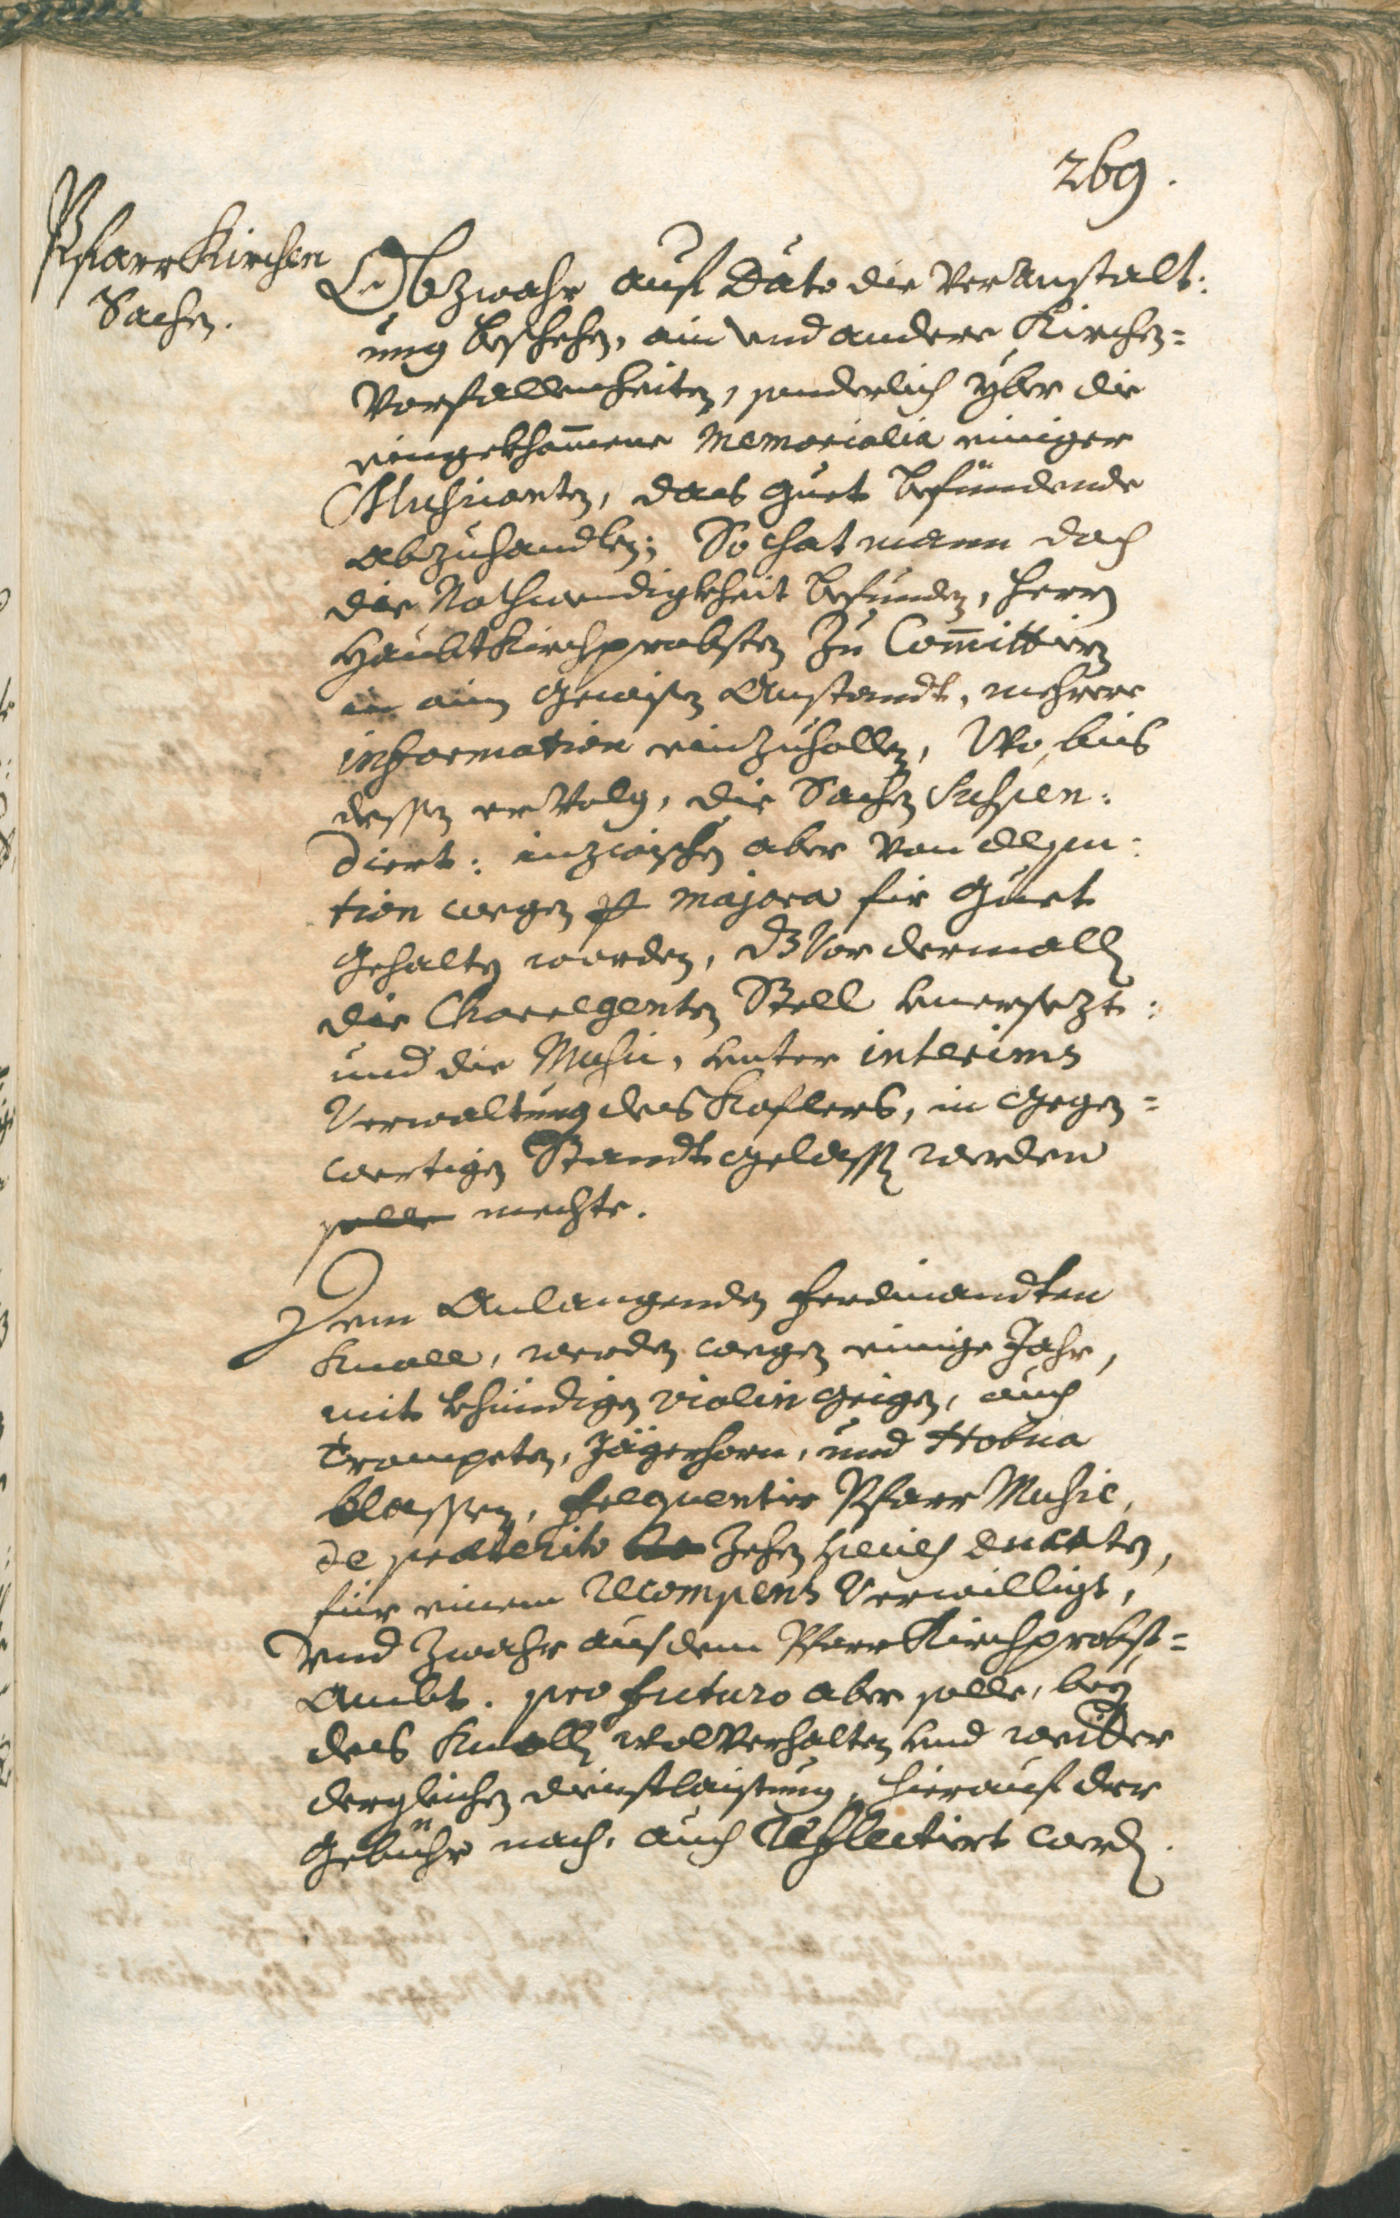 269.
Pfarr Kirchen
Sachen.
Obzwahr auf Dato die Veranstalt:
ung beschehen, ain und andere Kirchen=
Vorfallenheiten, sonderlich yber die
eingekhommene Memorialia einiger
Musicanten, das guet befundende
abzuhandlen; So hat mann doch
die Nothwendigkheit befunden, Herrn
Haubtkirchprobsten zu Committirn
in ain gewisen Anstandt, mehrere
information einzuhollen, Wo, bis
dessen ervolg, die Sachen Suspen:
diert: inzwischen aber von
tion wegen per majora für guet
gehalten worden, dz vor dermalln
die Choregenten Stell unersezt:
und die Music, unter interims
Verwaltung des Koflers, in gegen=
wertigen Standt gelassen werden
solle mechte.
Dem Anlangenden Ferdinandten
Knoll, werden wegen einige Jahr,
mit khündigen Violin geigen, auch
Trompeten, Jägerhorn, und Hoboa
blassen, frequentirter Pfarr Music,
de praeterito zehen ducaten,
für einem Recompens Verwilligt,
und zwahr aus dem Pfarr Kirchprobst=
Ambt. pro futuro aber solle, bey
des Knolln wolverhalten und weitter
dergleichen dienstlaistung, hierauf der
gebühr nach, auch Reflectiert werden.